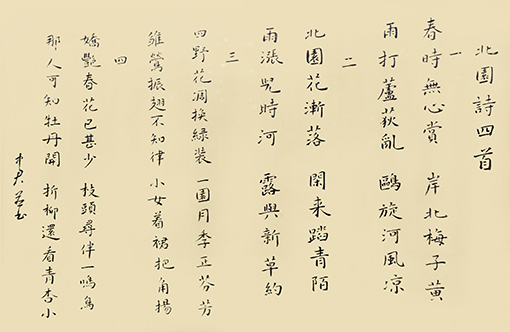 北園詩四首
一
春時無心賞 岸北梅子黃
雨打蘆荻亂 鷗旋河風凉
二
北園花漸落 閑来踏青陌
雨漲兒時河 露與新草約
三
四野花凋換綠裝 一園月季正芬芳
雏鶯振翅不知律 小女着裙把角揚
四
嬌艷春花已甚少 枝頭尋伴一鳴鳥
那人可知牡丹開 折柳還看青杏小